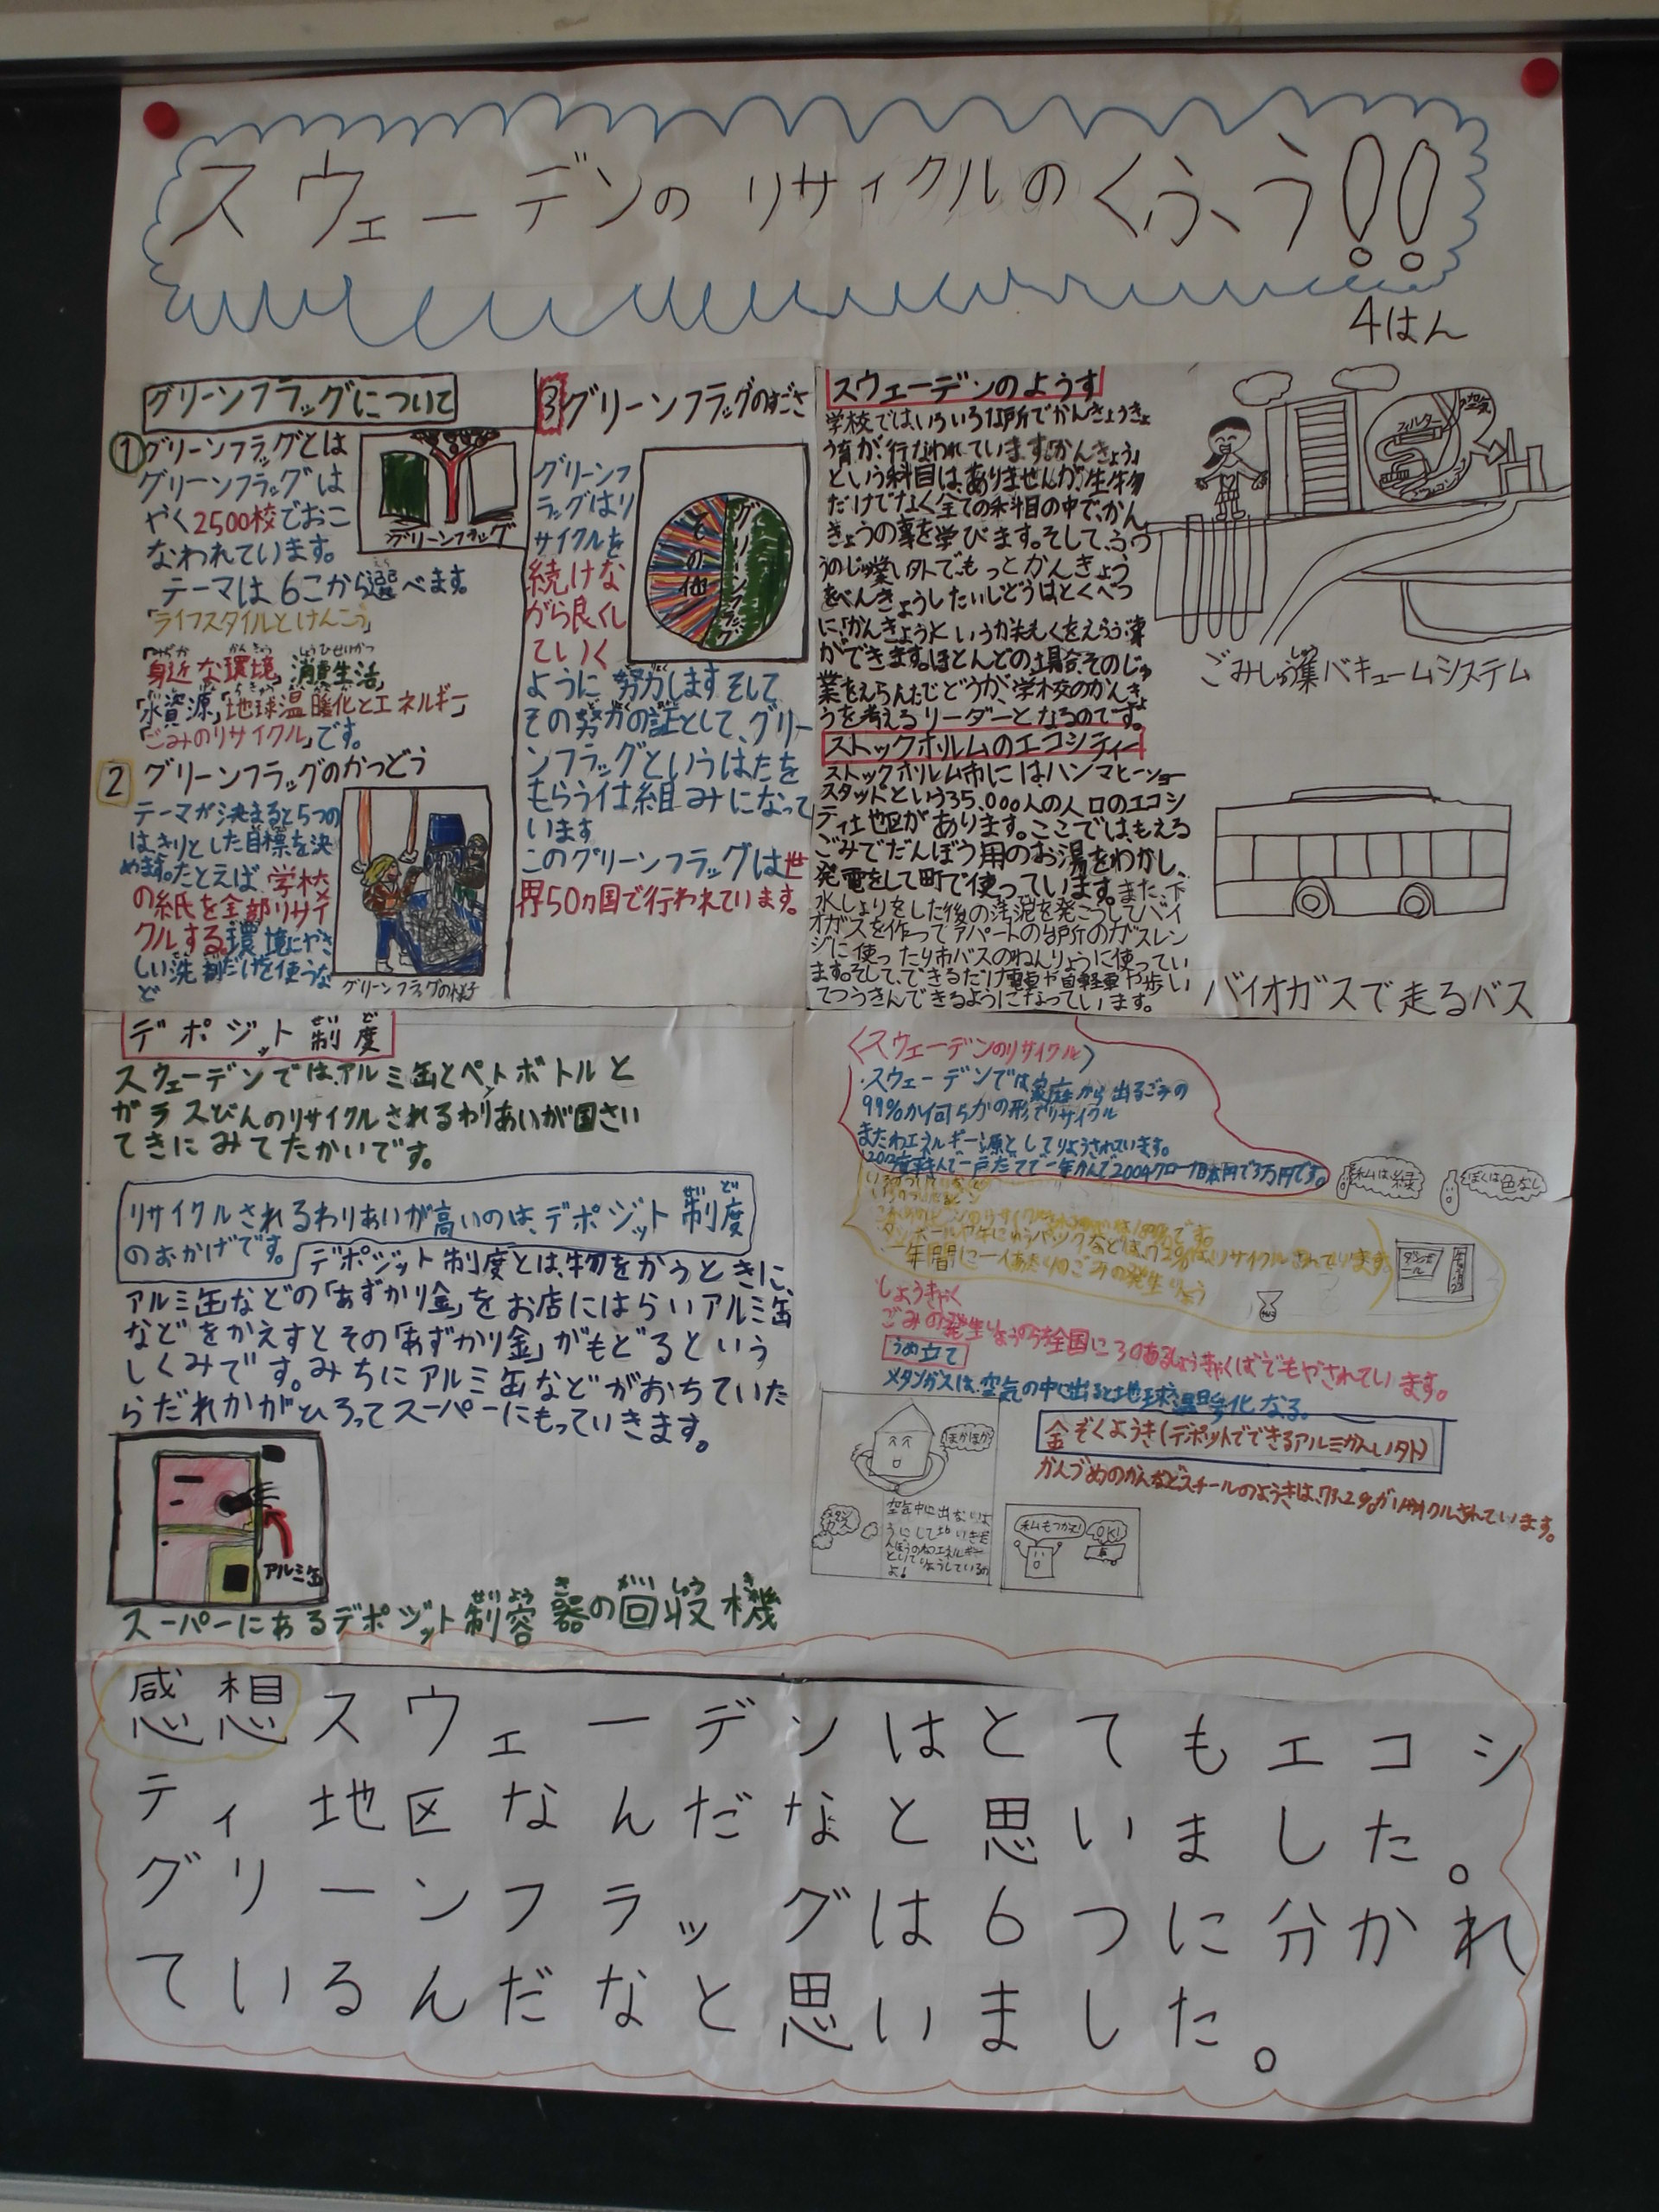 スウェーデンの リサイクルのくふう!!
4はん
グリーンフラッグについて
① グリーンフラッグとは
グリーンフラッグは
やく2500校でおこ
なわれています。
テーマは6こから選べます。
「ライフスタイルとけんこう」
「身近な環境」「消費生活」
「水資源」「地球温暖化とエネルギー」
「ごみのリサイクル」です。
グリーンフラッグ
2 グリーンフラッグのかつどう
テーマが決まると5つの
はっきりとした目標を決
めます。たとえば学校
の紙を全部リサイ
クルする環境にやさ
しい洗剤だけを使うな
ど
グリーンフラッグの様子
3 グリーンフラッグのすごさ
グリーンフ
ラッグはリ
サイクルを
続けな
がら良くし
ていく
ように努力します そして
その努力の証として、グリー
ンフラッグというはたを
もらう仕組みになって
います
このグリーンフラッグは世
界50カ国で行われています。
その他
グリーンフラッグ
スウェーデンのようす
学校ではいろいろな場所でかんきょうきょ
う育が、行なわれています。「かんきょう」
という科目は、ありませんが、生物
だけでなく全ての科目の中で、かん
きょうの事を学びます。そして、ふつ
うのじゅ業以外で、もっとかんきょう
をべんきょうしたいじどうは、とくべつ
に「かんきょう」というかもくをえらぶ事
ができます。ほとんどの場合、そのじゅ
業をえらんだじどうが、学校のかんきょ
うを考えるリーダーとなるのです。
フィルター
空気
ごみしゅう集バキュームシステム
ストックホルムのエコシティー
ストックホルム市には、ハンマビーショー
スタットという35,000人の人口のエコシ
ティ地区があります。ここでは、もえる
ごみでだんぼう用のお湯をわかし、
発電をして町で使っています。また、下
水しょりをした後の汚泥を発こうしてバイ
オガスを作ってアパートの台所のガスレン
ジに使ったり市バスのねんりょうに使ってい
ます。そして、できるだけ電車や自転車や歩い
てつうきんできるようになっています。
バイオガスで走るバス
デポジット制度
スウェーデンでは、アルミ缶とペットボトルと
ガラスびんのリサイクルされるわりあいが国さい
てきにみてたかいです。
リサイクルされるわりあいが高いのは、デポジット制度
のおかげです。
デポジット制度とは、物をかうときに、
アルミ缶などの「あずかり金」をお店にはらい アルミ缶
などをかえすとその「あずかり金」がもどるという
しくみです。みちにアルミ缶などがおちていた
らだれかがひろってスーパーにもっていきます。
アルミ缶
スーパーにあるデポジット制容器の回収機
〈スウェーデンのリサイクル〉
・スウェーデンでは家庭から出るごみの
99%が何らかの形でリサイクル
またわエネルギー源としてりようされています。
私は緑
ぼくは色なし
ダンボールや牛にゅうパックなどは、72%はリサイクルされています
一年間に一人あたりのごみの発生りょう
ダンボール
しょうきゃく
ごみの発生りょうのうち全国に30あるしょうきゃくばでもやされています。
うめ立て
メタンガスは、空気の中に出ると地球温暖化なる。
ぽかぽか
メタンガス
空気中に出ないよ
うにして地いきだ
んぼうのエネルギー
としてりようしているの
よ!
金ぞくようき(デポットでできるアルミかんい外)
かんづめのかんなどスチールのようきは、73.2%がリサイクルされています。
私もつかえ!
OK!
感想 スウェーデンはとてもエコシ
ティ地区なんだなと思いました。
グリーンフラッグは6つに分かれ
ているんだなと思いました。